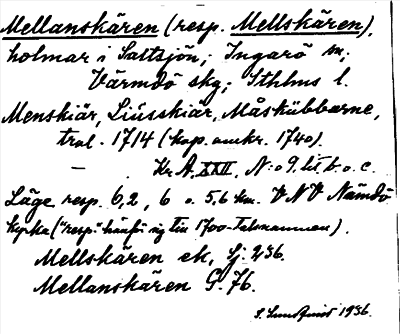 Mellanskären (resp. Mellskären),
holmar i Saltsjön; Ingarö sn;
Värmdö skg; Sthlms l.
Menskiär, Liússkiär, Måskübbarne,
trol. 1714 (kop. omkr. 1740).
— Kr A, XXII, N:o 9. lit. b. o. c.
Läge resp. 6,2, 6 o. 5,6 km. VNV Nämdö
kyrka ("resp." hänför sig till 1700-talsnamnen).
Mellskären ek, Lj. 236.
Mellanskären G. 76.
S. Lundquist 1936.